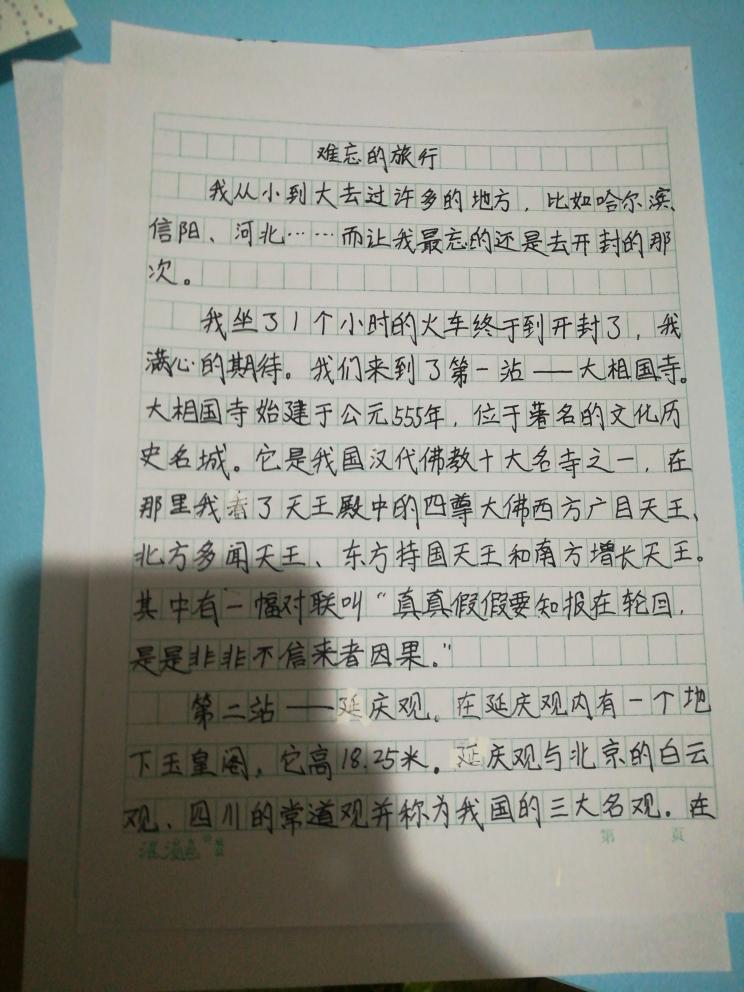 难忘的旅行
我从小到大去过许多的地方，比如哈尔滨、
信阳、河北……而让我最忘的还是去开封的那
次。
我坐了1个小时的火车终于到开封了，我
满心的期待。我们来到了第一站——大相国寺。
大相国寺始建于公元555年，位于著名的文化历
史名城。它是我国汉代佛教十大名寺之一，在
那里我看了天王殿中的四尊大佛西方广目天王、
北方多闻天王、东方持国天王和南方增长天王。
其中有一幅对联叫“真真假假要知报在轮回，
是是非非不信来者因果。”
第二站——延庆观。在延庆观内有一个地
下玉皇阁，它高18.25米。延庆观与北京的白云
观、四川的常道观并称为我国的三大名观。在
第 頁